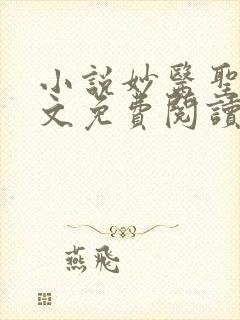 小說妙醫聖
文免費閱讀
燕飛